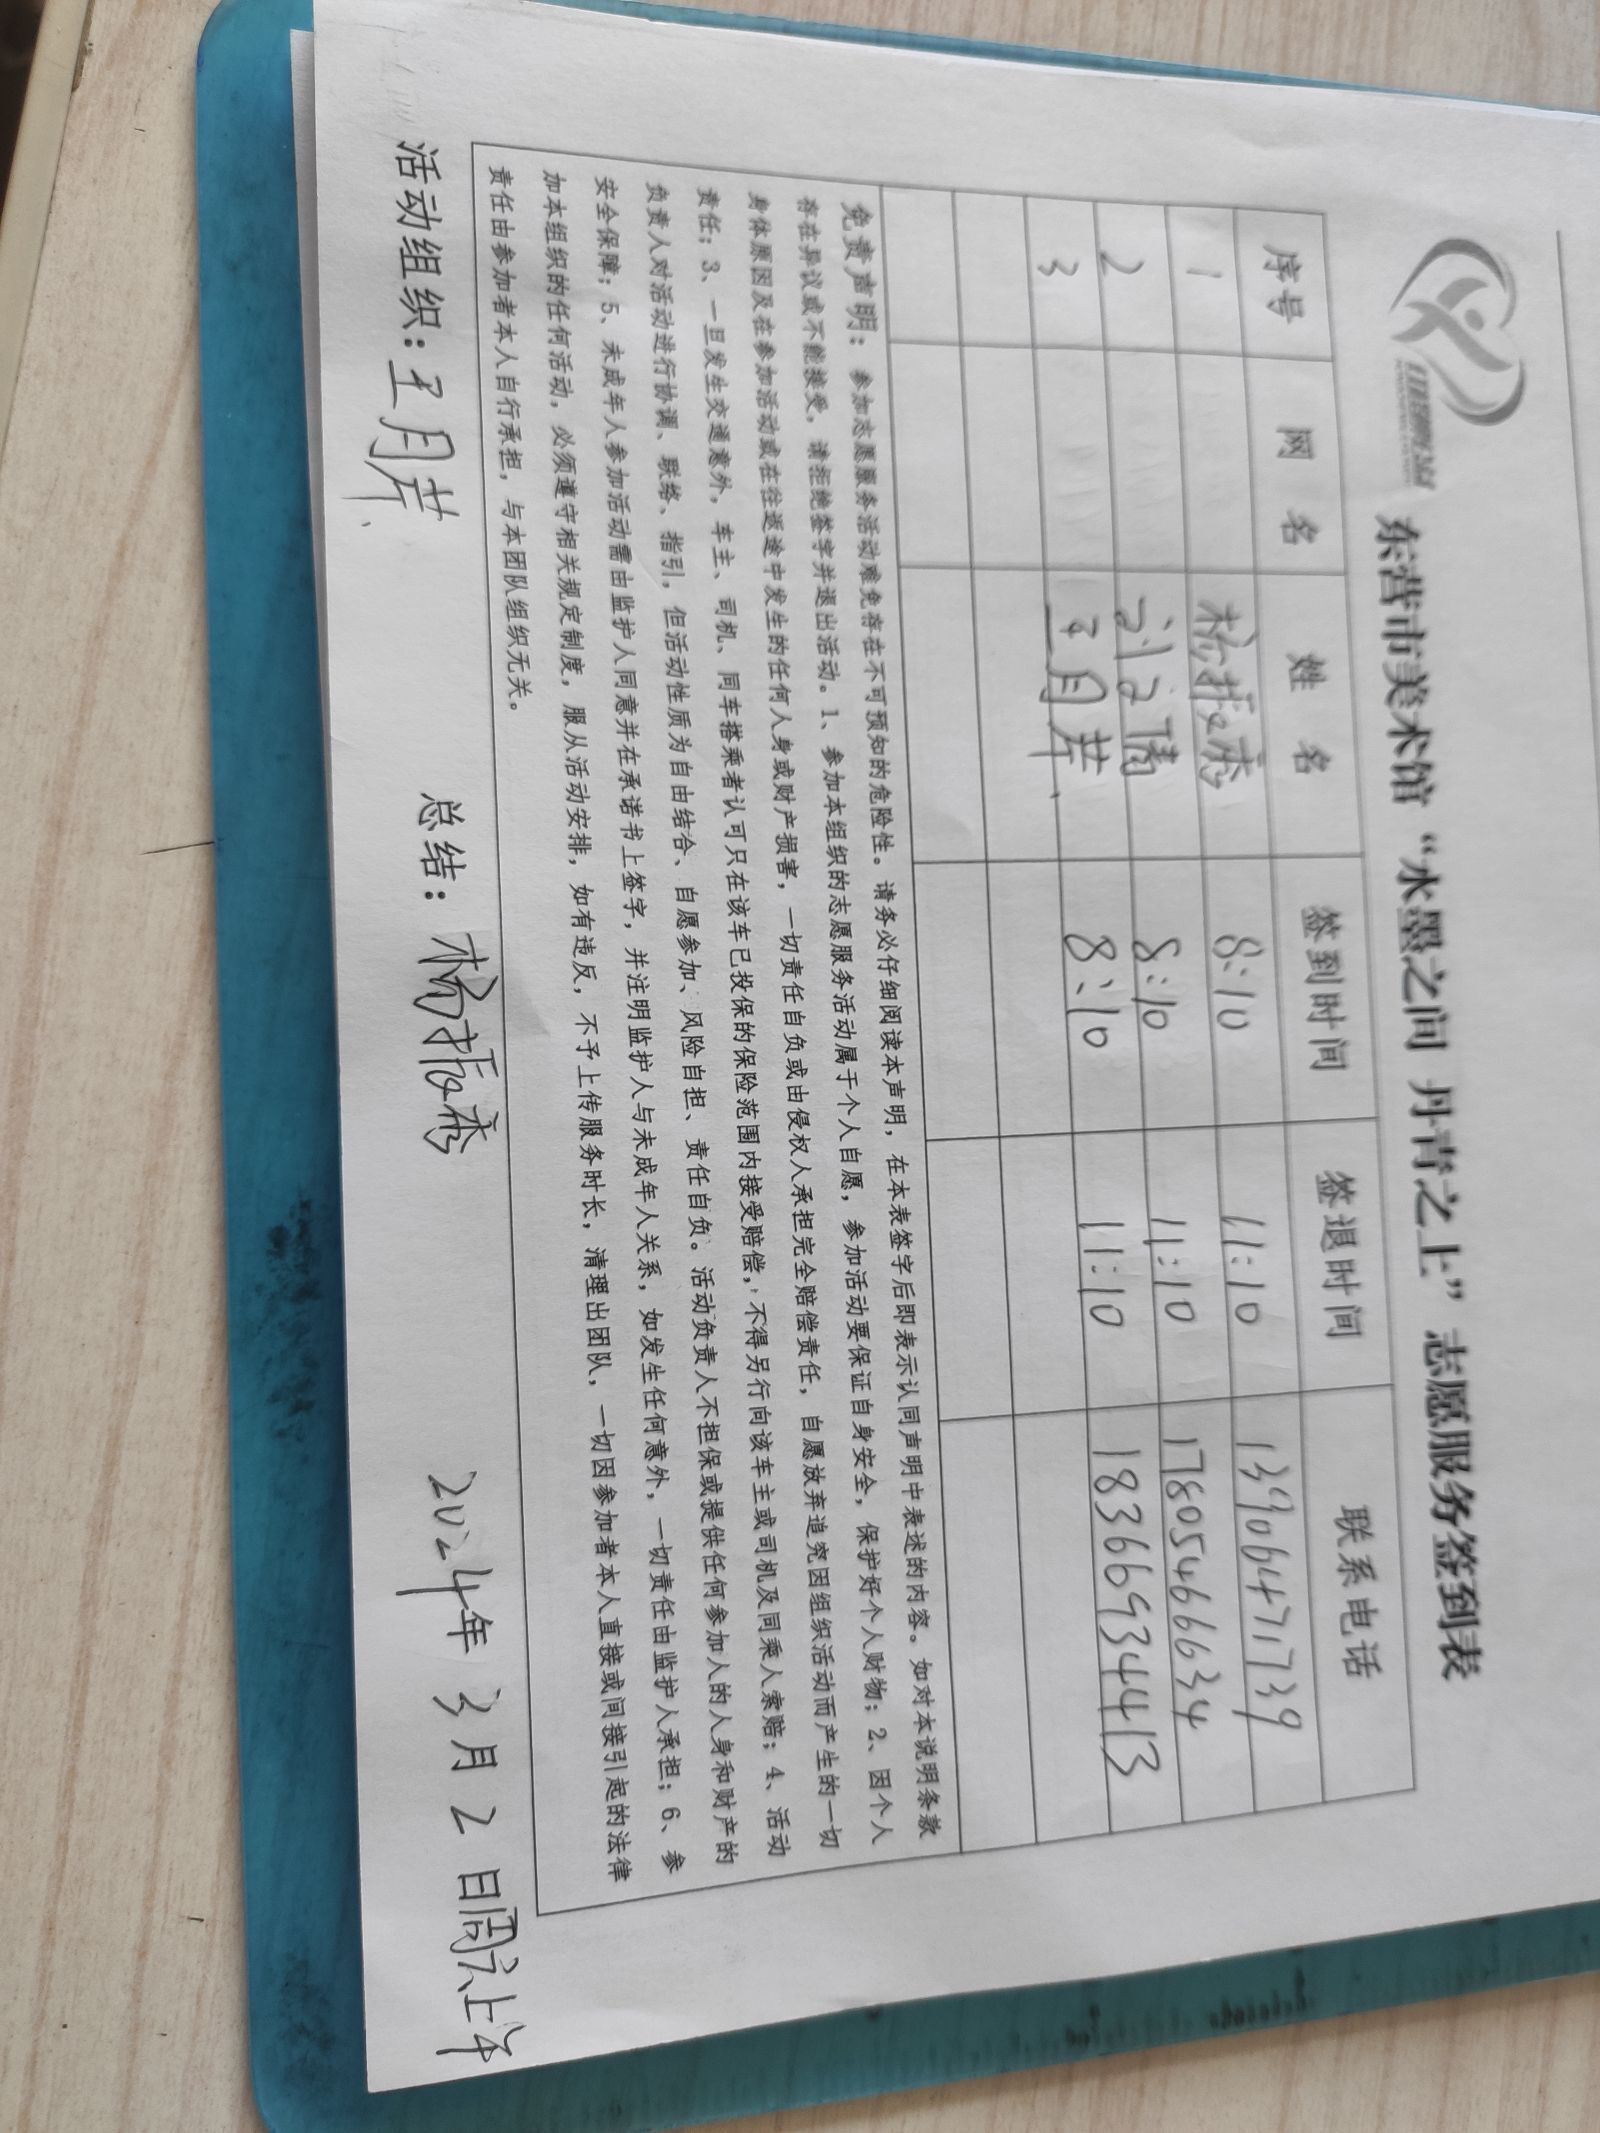 东营市美术馆“水墨之间 丹青之上”志愿服务签到表
序号 网 名 姓 名 签到时间 签退时间 联系电话
1 杨振秀 8:10 11:10 13906471739
2 刘 8:10 11:10 17805466634
3 王月芹 8:10 11:10 18366934413
免责声明：参加志愿服务活动难免存在不可预知的危险性。请务必仔细阅读本声明，在本表签字后即表示认同声明中表述的内容。如对本说明条款
存在异议或不能接受，请拒绝签字并退出活动。1、参加本组织的志愿服务活动属于个人自愿，参加活动要保证自身安全，保护好个人财物；2、因个人
身体原因及在参加活动或在往返途中发生的任何人身或财产损害，一切责任自负或由侵权人承担完全赔偿责任，自愿放弃追究因组织活动而产生的一切
责任；3、一旦发生交通意外，车主、司机、同车搭乘者认可只在该车已投保的保险范围内接受赔偿，不得另行向该车主或司机及同乘人索赔；4、活动
负责人对活动进行协调、联络、指引，但活动性质为自由结合、自愿参加、风险自担、责任自负。活动负责人不担保或提供任何参加人的人身和财产的
安全保障；5、未成年人参加活动需由监护人同意并在承诺书上签字，并注明监护人与未成年人关系，如发生任何意外，一切责任由监护人承担；6、参
加本组织的任何活动，必须遵守相关规定制度，服从活动安排，如有违反，不予上传服务时长，清理出团队，一切因参加者本人直接或间接引起的法律
责任由参加者本人自行承担，与本团队组织无关。
活动组织：王月芹 总结：杨振秀 2024年 3月 2日周六上午